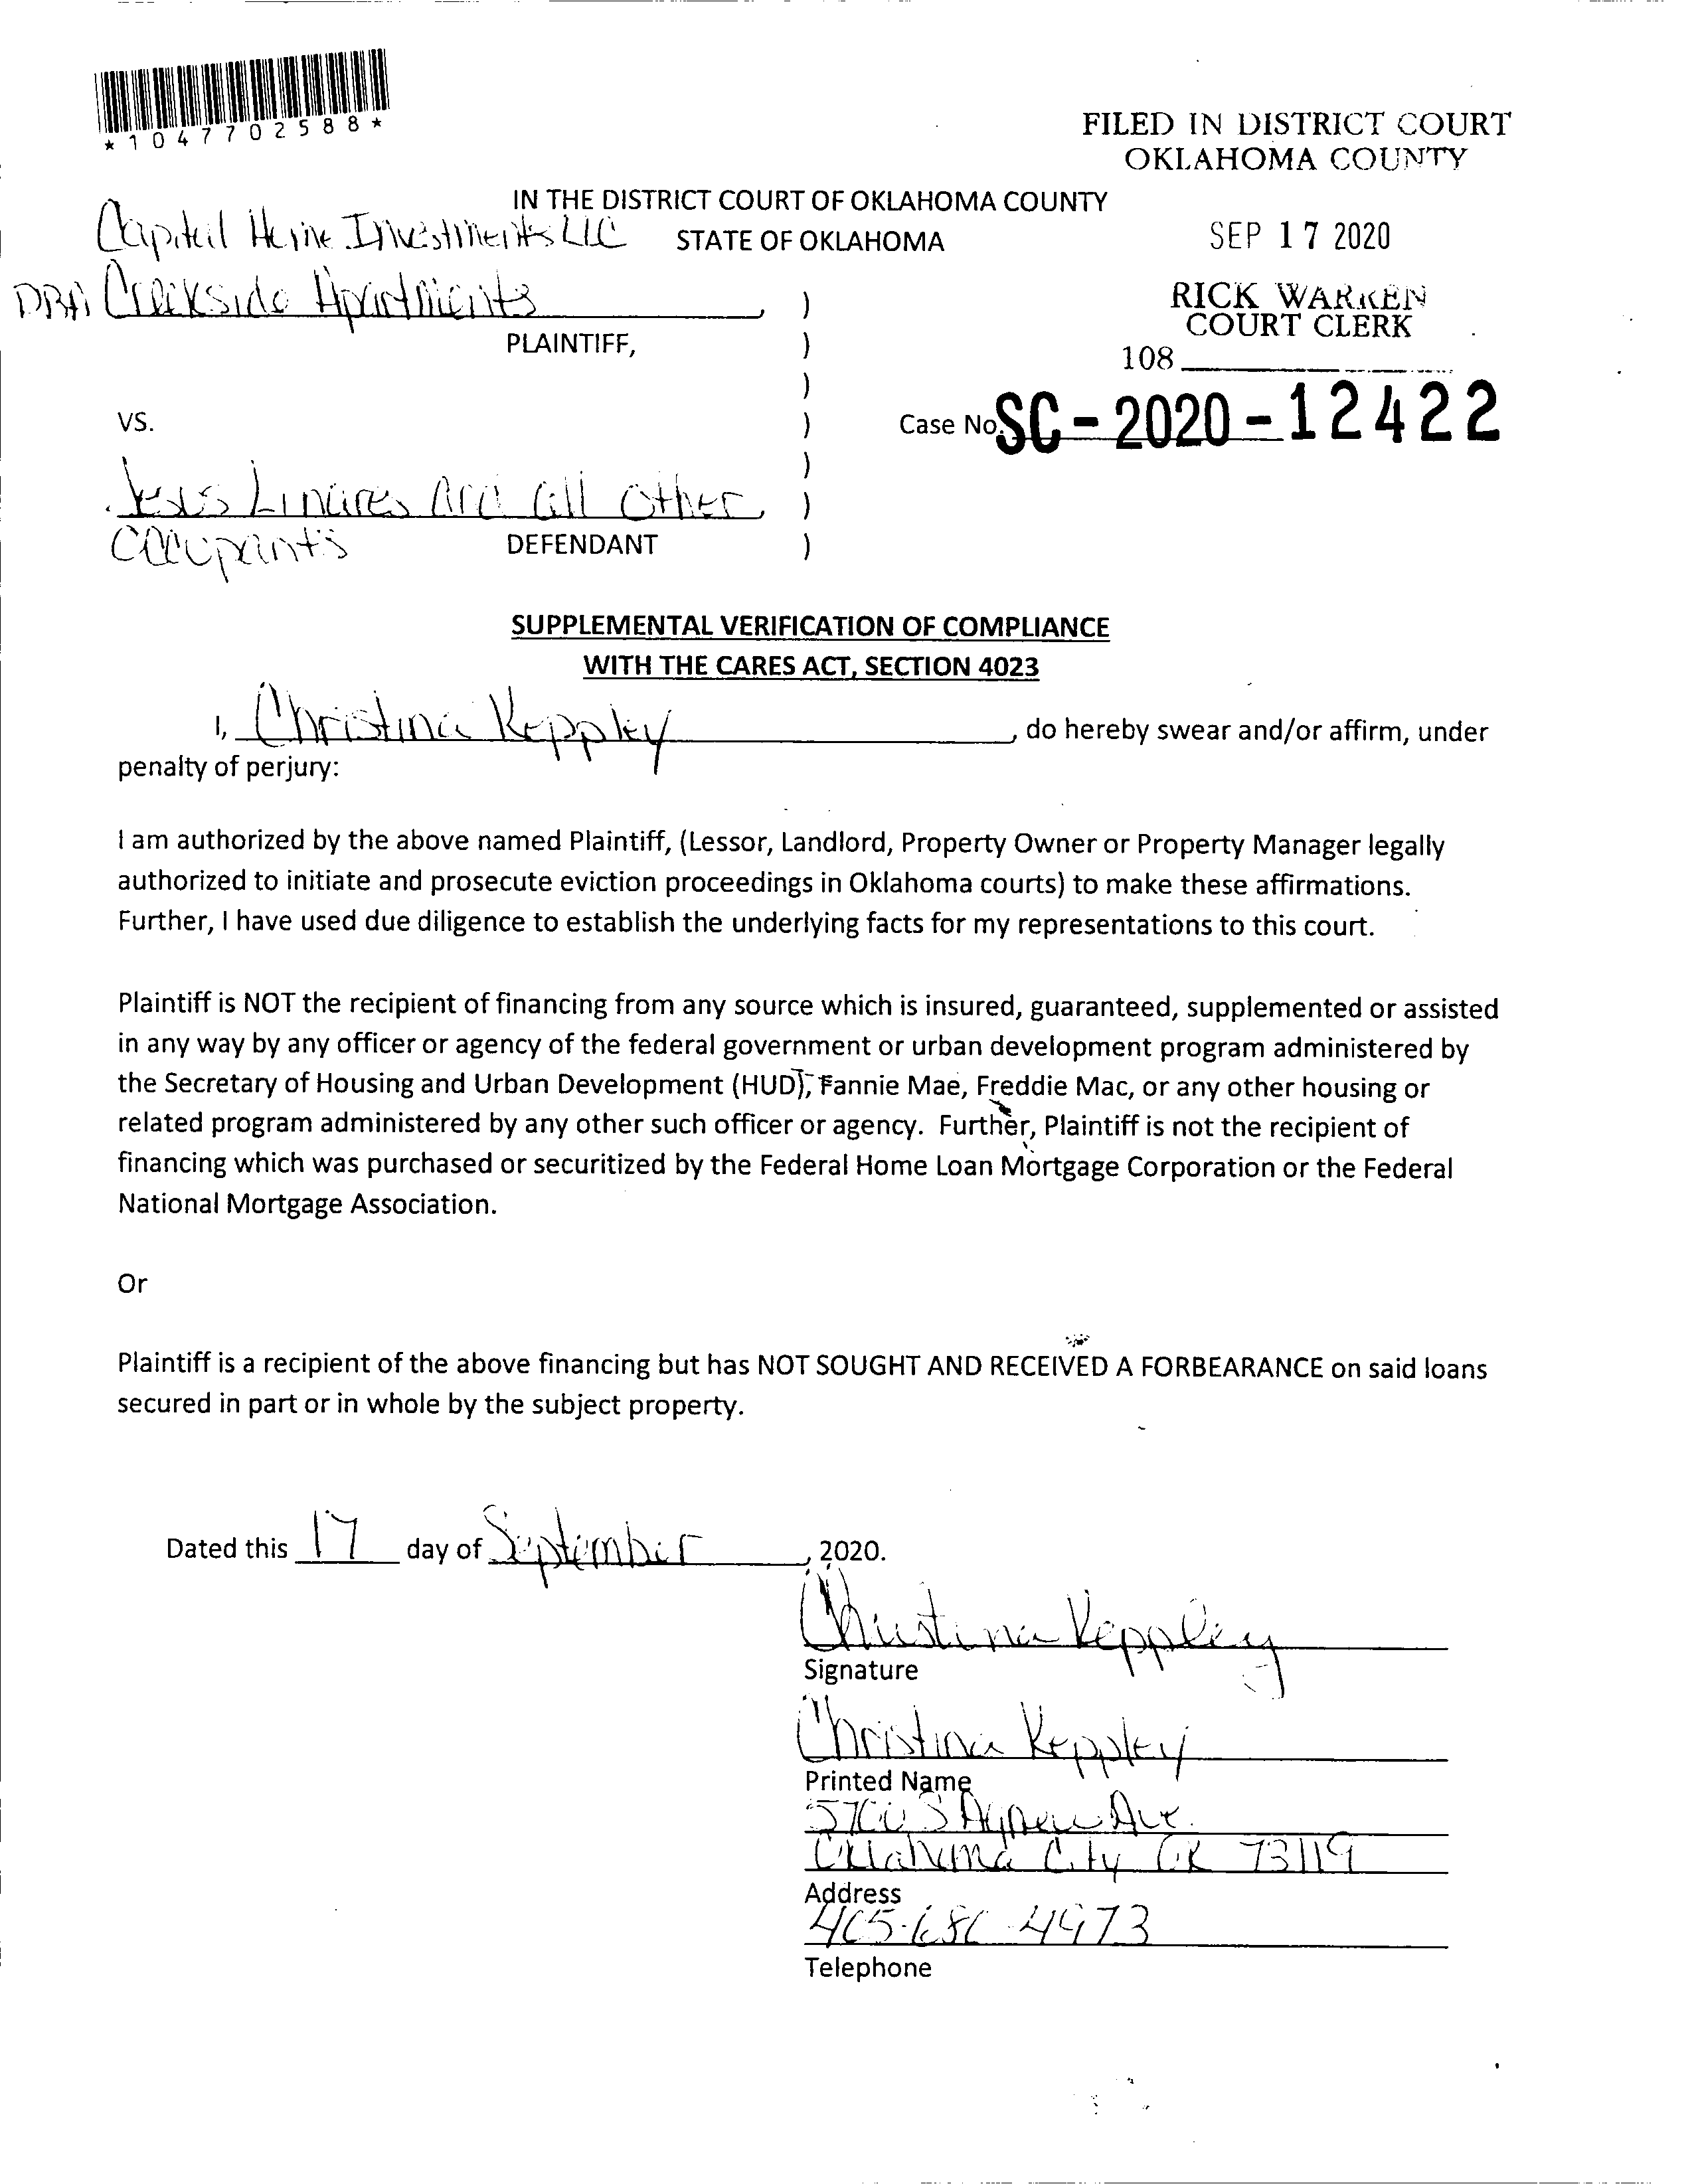 *1047702588*
FILED IN DISTRICT COURT
OKLAHOMA COUNTY
IN THE DISTRICT COURT OF OKLAHOMA COUNTY
STATE OF OKLAHOMA
SEP 17 2020
RICK WARREN
COURT CLERK
108
Capital Home Investments LLC
DBA Creekside Apartments )
PLAINTIFF, )
)
VS. )
Case No. SC-2020-12422
)
Jesus Linares And all other )
occupants
DEFENDANT )
SUPPLEMENTAL VERIFICATION OF COMPLIANCE
WITH THE CARES ACT, SECTION 4023
I, Christina Keppley, do hereby swear and/or affirm, under
penalty of perjury:
I am authorized by the above named Plaintiff, (Lessor, Landlord, Property Owner or Property Manager legally
authorized to initiate and prosecute eviction proceedings in Oklahoma courts) to make these affirmations.
Further, I have used due diligence to establish the underlying facts for my representations to this court.
Plaintiff is NOT the recipient of financing from any source which is insured, guaranteed, supplemented or assisted
in any way by any officer or agency of the federal government or urban development program administered by
the Secretary of Housing and Urban Development (HUD), Fannie Mae, Freddie Mac, or any other housing or
related program administered by any other such officer or agency. Further, Plaintiff is not the recipient of
financing which was purchased or securitized by the Federal Home Loan Mortgage Corporation or the Federal
National Mortgage Association.
Or
Plaintiff is a recipient of the above financing but has NOT SOUGHT AND RECEIVED A FORBEARANCE on said loans
secured in part or in whole by the subject property.
Dated this 17 day of September, 2020.
Christina Keppley
Signature
Christina Keppley
Printed Name
5700 S Agnew Ave.
Oklahoma City OK 73119
Address
405-680-4973
Telephone